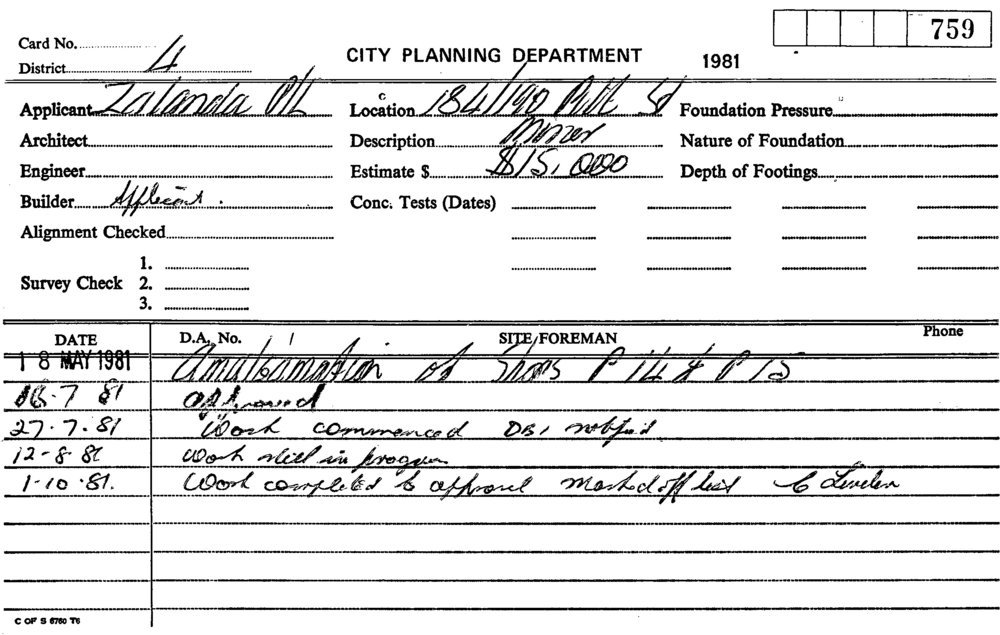 759
Card No.
District 4
CITY PLANNING DEPARTMENT 1981
Applicant Zalanda P/L Location 184/190 Pitt St Foundation Pressure
Architect Description Minor Nature of Foundation
Engineer Estimate $ $15,000 Depth of Footings
Builder Applicant. Conc. Tests (Dates)
Alignment Checked
1.
Survey Check 2.
3.
DATE D.A. No. SITE FOREMAN Phone
18 MAY 1981 Amalgamation of Shops P 14 & P 15
7 81 approved
27-7-81 Work commenced DBI notified
12-8-81 Work still in progress
1-10-81. Work completed to approval Marked off list C
C OF S 6760 T6